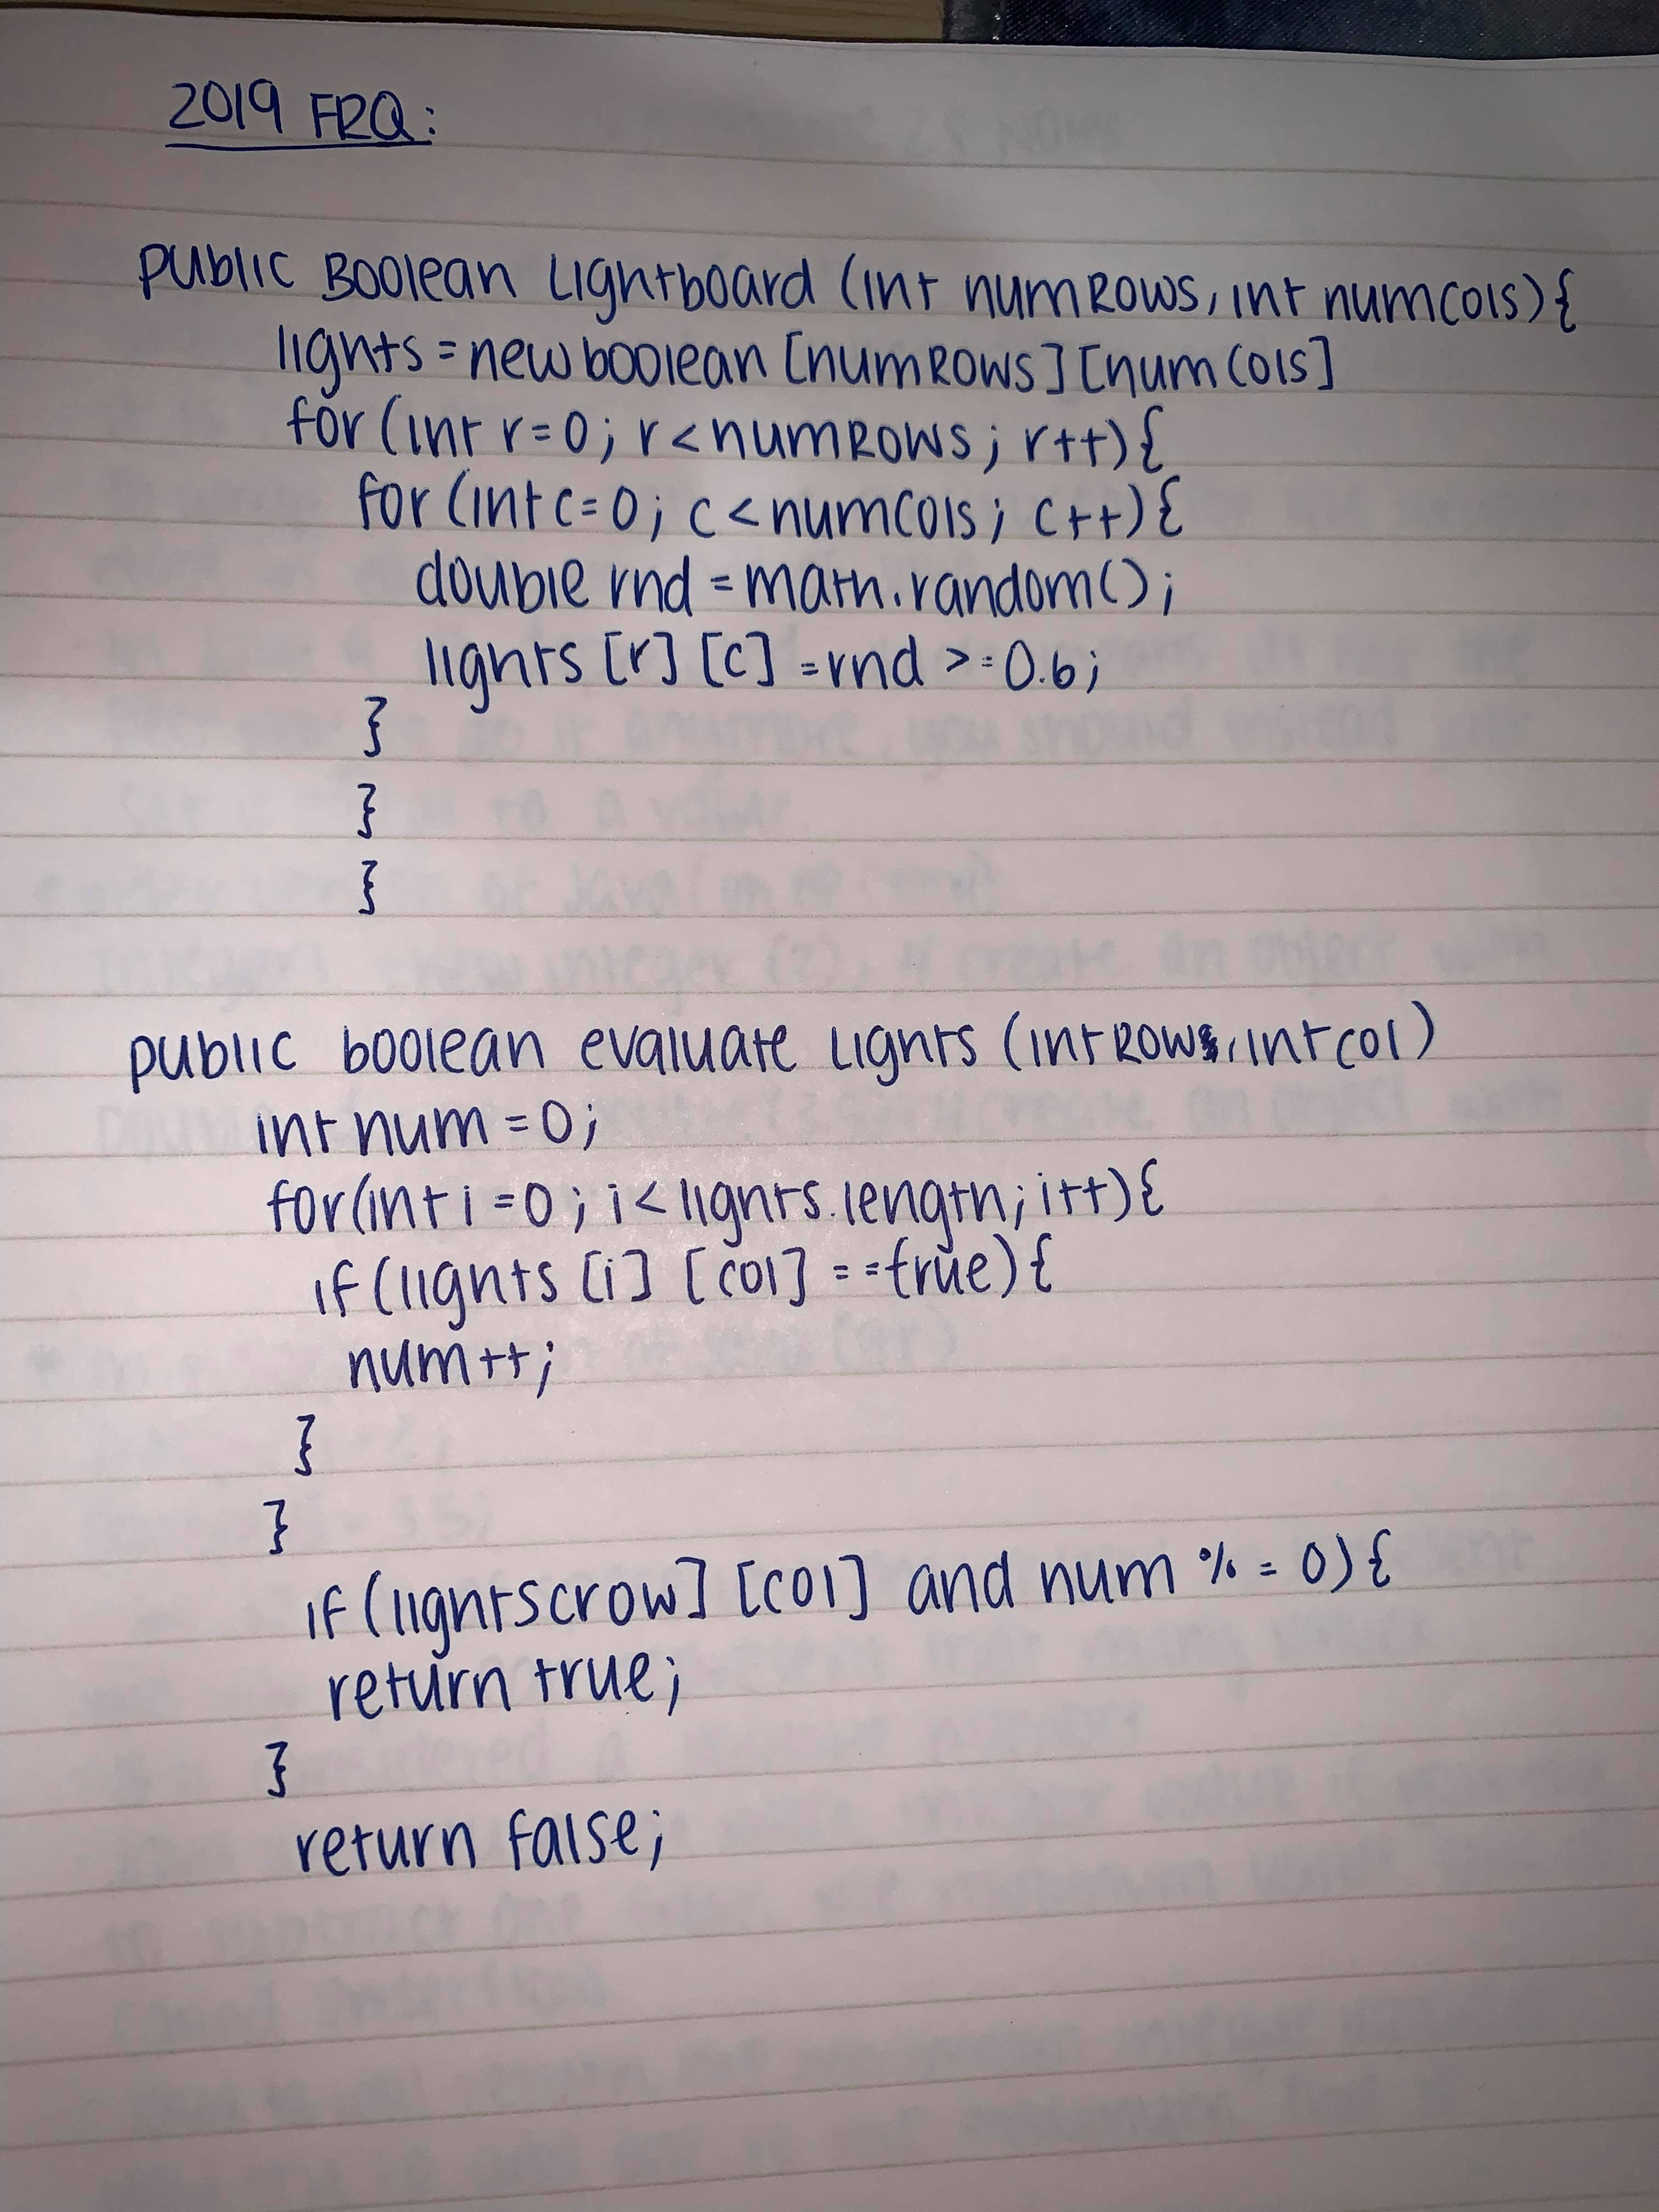 2019 FRQ:
public Boolean Lightboard (int numRows, int numCols) {
lights = new boolean [numRows] [numCols]
for (int r=0; r<numRows; r++) {
for (int c=0; c<numCols; c++) {
double rnd = math.random();
lights [r] [c] =rnd >=0.6;
}
}
}
public boolean evaluate Lights (int Row, int col)
int num =0;
for(int i =0; i< lights.length; i++) {
if (lights [i] [col] ==true) {
num++;
}
}
if (lights[row] [col] and num %= 0) {
return true;
}
return false;